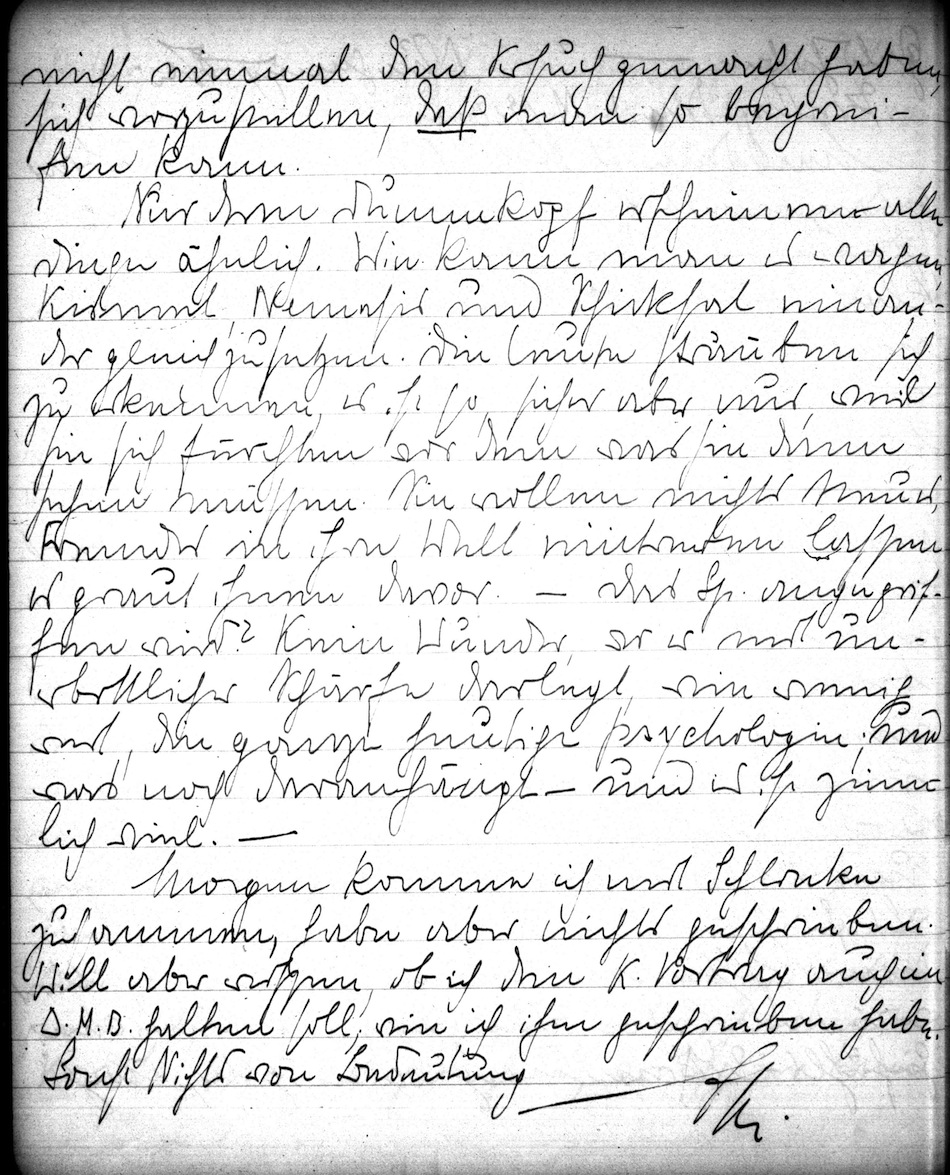 nicht einmal den Versuch gemacht haben,
sich vorzustellen, daß man so begrei-
fen kann.
Nur dem Dummkopf erscheinen alle
Dinge ähnlich. Wie kann man es wagen,
Kismet, Nemesis und Schicksal einan-
der gleichzusetzen. Die Leute sträuben sich
zu erkennen, es ist so, sicher aber nur, weil
sie sich fürchten vor dem was sie dann
sehen müssen. Sie wollen nichts Neues,
Fremdes in ihre Welt eintreten lassen
es graut ihnen davor. — Das Sp. angegrif-
fen wird? Kein Wunder, wo er mit un-
erbittlicher Schärfe darlegt, wie wenig
wert, die ganze heutige Psychologie; und
was noch daranhängt — und es ist ziem-
lich viel. —
Morgen komme ich mit
zusammen, habe aber nichts geschrieben.
Will aber wissen, ob ich den K. Vortrag auch im
D.M.B. halten soll, wie ich ihm geschrieben habe.
Sonst Nichts von Bedeutung